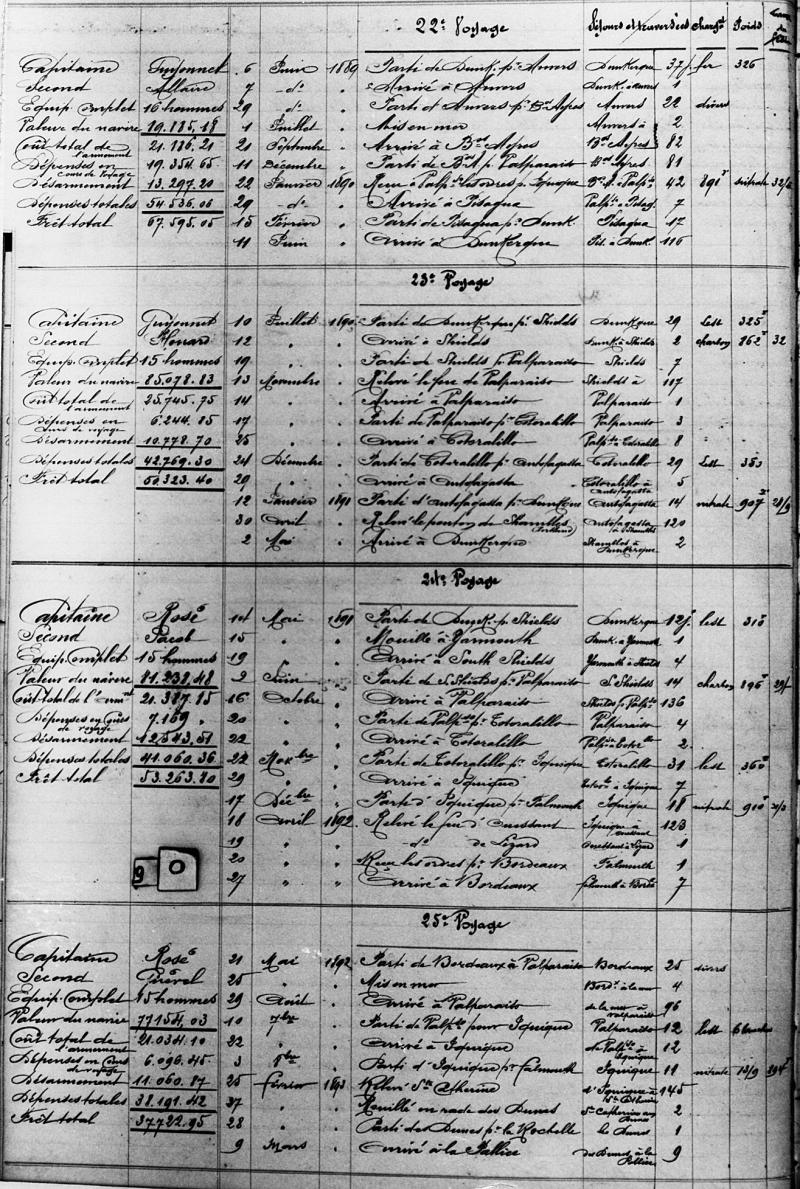 22e Voyage Séjours et traversées charg.t Poids
Capitaine Guyonnet 6 Juin 1889 Parti de Dunk. pr Anvers Dunkerque 37 j. fer 326
Second Allaire 7 -d°- Arrivé à Anvers Dunk. à Anvers 1
Equip. Complet 16 hommes 29 d° Parti d'Anvers pr Bs Ayres Anvers 22 divers
Valeur du navire 1 Juillet " Mis en mer Anvers à 2
Coût total de l'armement 21.186,21 21 Septembre " Arrivé à Bs Ayres Bs Ayres 82
Dépenses en cours de voyage 19.354.65 11 Décembre " Parti de Bs A. pr Valparaiso Bs Ayres 81
Désarmement 13.297.20 22 Janvier 1890 42 891 T nitrate
Dépenses totales 54.536.06 29 -d°- Arrivé à Pisagua 7
Frêt total 67.595.05 15 Février " Parti de Pisagua pr Dunk. Pisagua 17
11 Juin " Arrivé à Dunkerque Pis. à Dunk. 116
23e Voyage
Capitaine Guyonnet 10 Juillet 1890 Parti de Dunkerque pr Shields Dunkque 29 lest 325 T
Second 12 " " Arrivé à Shields Dunk à Shields 2 charbon 862 T 32
Equip. Complet 15 hommes 19 " " Parti de Shields pr Valparaiso Shields 7
Valeur du navire 85.078.83 13 Novembre " Relevé le feu de Valparaiso Shields à 117
Coût total de l'armement 25.745.75 14 " " Arrivé à Valparaiso Valparaiso 1
Dépenses en cours de voyage 6.244.85 17 " " Parti de Valparaiso pr Totoralillo Valparaiso 3
Désarmement 10.778.70 25 " " Arrivé à Totoralillo Valpso à Totoralillo 8
Dépenses totales 42.769.30 24 Décembre " Parti de Totoralillo pr Antofagasta Totoralillo 29 lest
Frêt total 60.323.40 29 " " Arrivé à Antofagasta Totoralillo à Antofagasta 5
12 Janvier 1891 Parti d'Antofagasta pr Dunkque Antofagasta 14 nitrate 907 T
30 Avril " Antofagasta 120
2 Mai " Arrivé à Dunkerque à Dunkerque 2
24e Voyage
Capitaine Rosé 14 Mai 1891 Parti de Dunk. pr Shields Dunkerque 12 j. lest 310
Second Jacob 15 " " Mouillé à Yarmouth Dunk. à Yarmouth 1
Equip. Complet 15 hommes 19 " " Arrivé à South Shields Yarmouth à Shields 4
Valeur du navire 81.232.48 2 Juin " Parti de S. Shields pr Valparaiso S. Shields 14 charbon 896 T
Coût total de l'armnt 21.387.85 16 Octobre " Arrivé à Valparaiso Shields pr Valpso 136
Dépenses en cours de voyage 7.169 " 20 " " Parti de Valpso pr Totoralillo Valparaiso 4
Désarmement 12.543.51 22 " " Arrivé à Totoralillo 2
Dépenses totales 41.060.36 22 Novbre " Parti de Totoralillo pr Iquique Totoralillo 31 lest 360 T
Frêt total 53.263.80 29 " " Arrivé à Iquique à Iquique 7
17 Décbre " Parti d'Iquique pr Falmouth Iquique 18 nitrate 910 T
18 Avril 1892 Relevé le feu d'Ouessant Iquique à Ouessant 123
19 " " -d°- de Lézard Ouessant à Lézard 1
9 0 20 " " Reçu les ordres pr Bordeaux Falmouth 1
27 " " Arrivé à Bordeaux Falmouth à Bordx 7
25e Voyage
Capitaine Rosé 21 Mai 1892 Parti de Bordeaux à Valparaiso Bordeaux 25 divers
Second 25 " " Mis en mer Bordx à la mer 4
Equip. Complet 15 hommes 29 Août " Arrivé à Valparaiso de la mer à Valparaiso 96
Valeur du navire 77154,03 10 7bre " Parti de Valpso pour Iquique Valparaiso 12 lest
Coût total de l'armement 21.034.10 22 " " Arrivé à Iquique de Valpso à Iquique 12
Dépenses en cours de voyage 6.096.45 3 " Parti d'Iquique pr Falmouth Iquique 11 nitrate 13/9
Désarmement 11.060.87 25 Février 1893 Relevé Ste Catherine d'Iquique à Ste Catherine 145
Dépenses totales 38.191.42 27 " " Mouillé en rade des Dunes Ste Catherine aux Dunes 2
Frêt total 37722.95 28 " " Parti des Dunes pr la Rochelle les Dunes 1
9 Mars " Arrivé à la Pallice des Dunes à la Pallice 9